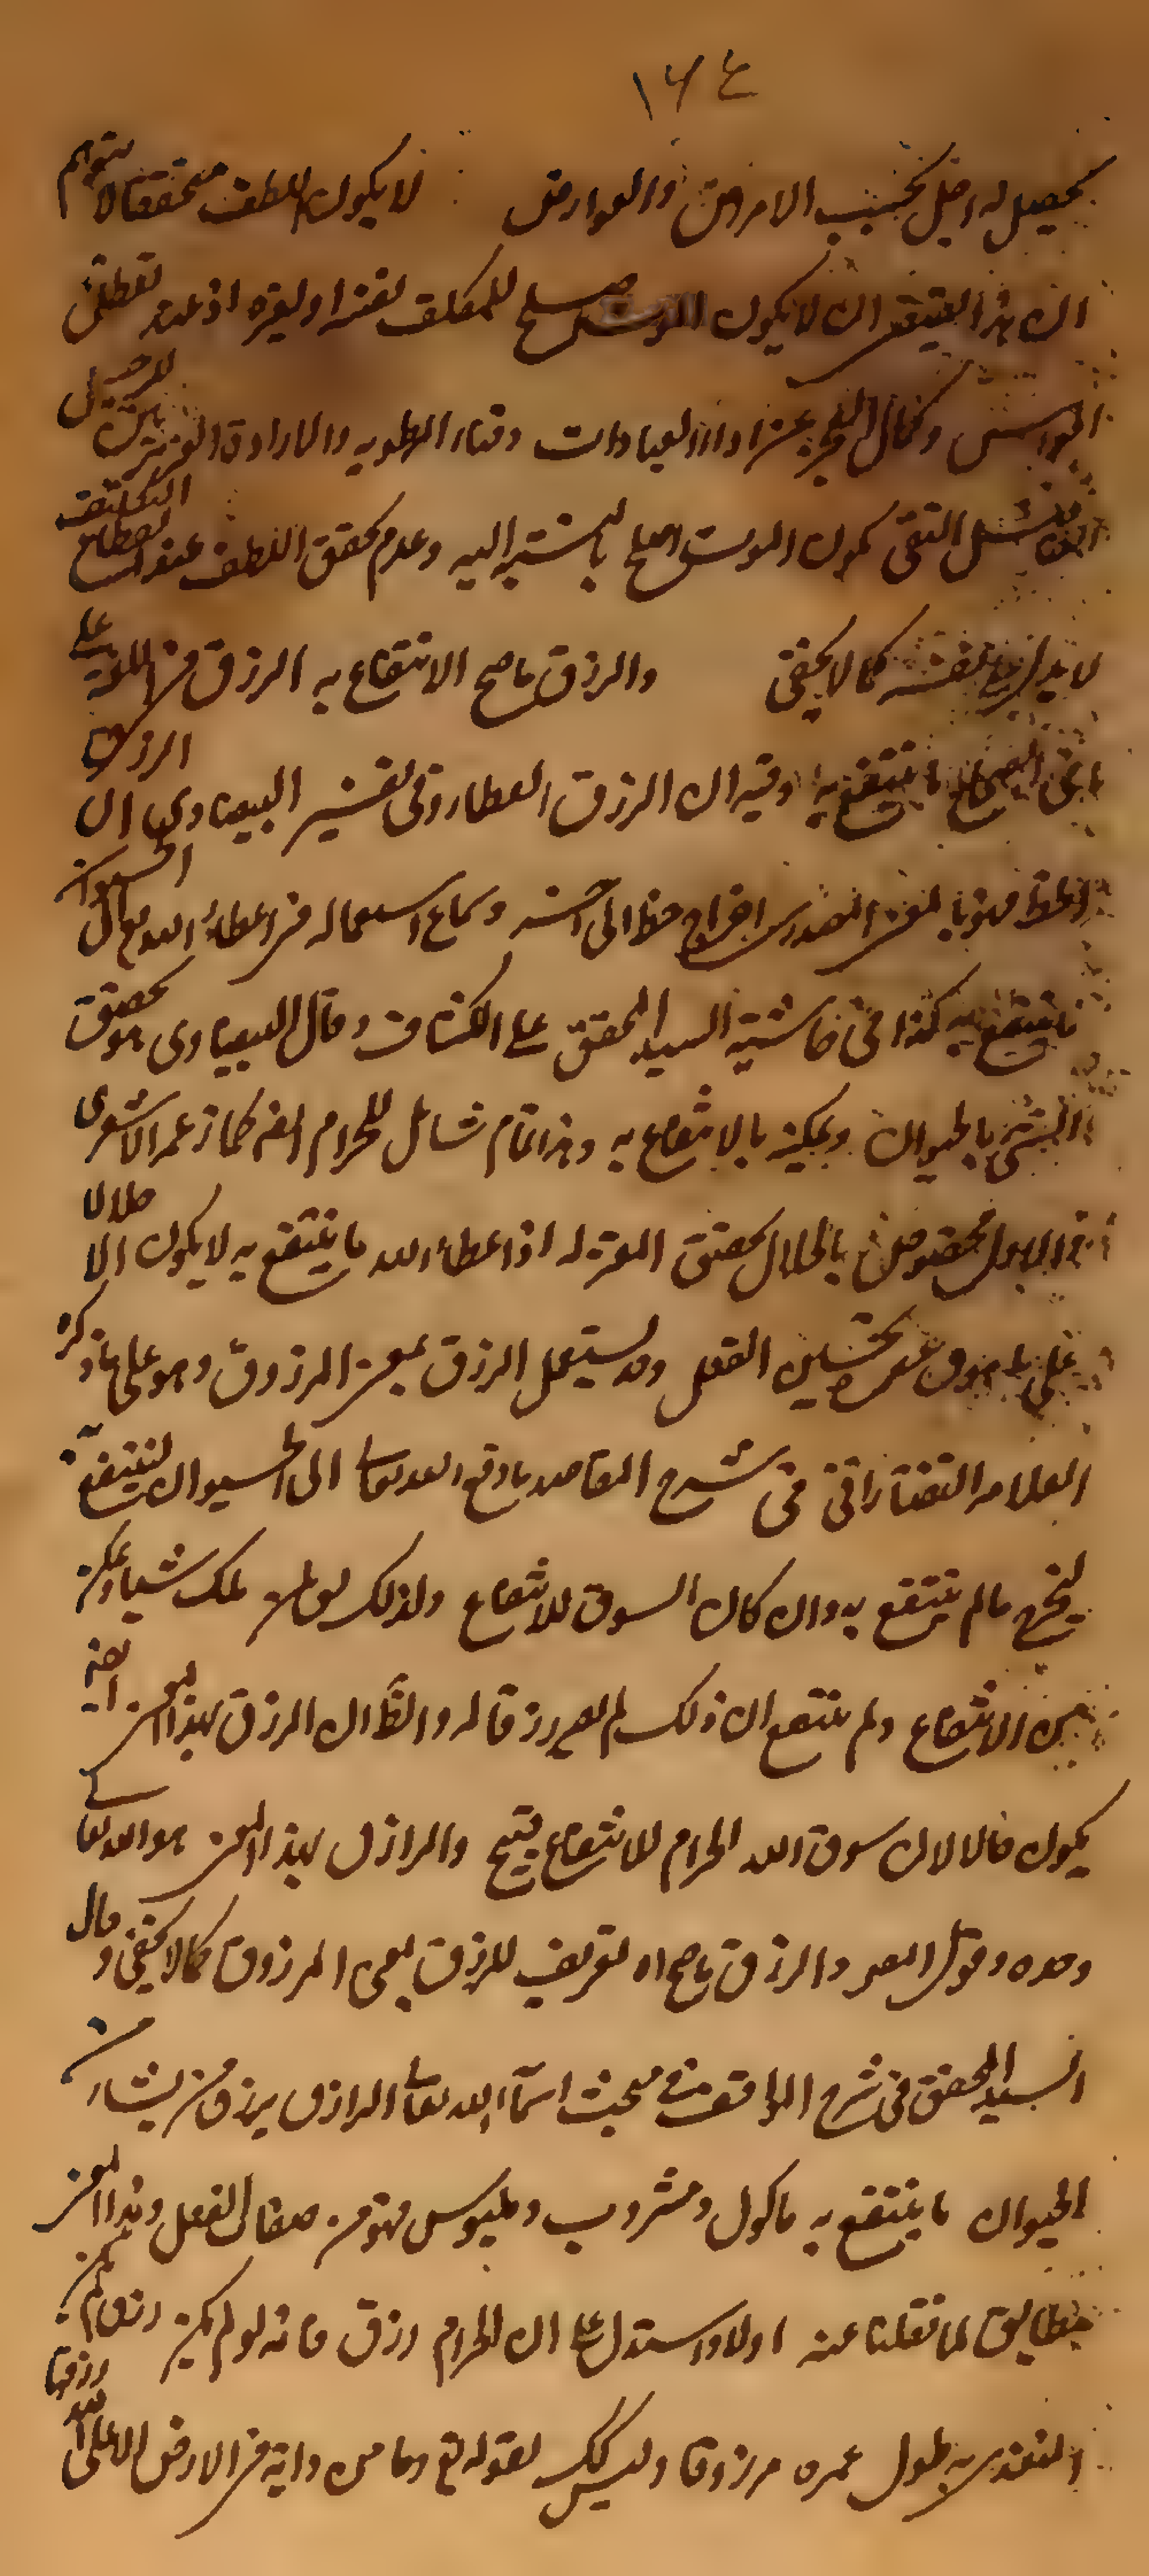 ١٦٤
يحصل له اجل بحسب الامراض والعوارض لا يكون اللطف متحققا لا يتوهم
ان هذا يقتضى ان لا يكون الموت اصلح للمكلف لنفسه او لغيره اذ عند تعطل
الحواس وكمال العجز عن اداء العبادات وفناء الرطوبه والارادة الغريزية
التقى يكون الموت اصلح بالنسبة اليه وعدم تحقق اللطف عند انقطاع التكليف
لا يدل على نفسه كما لا يخفى والرزق ما صح الانتفاع به الرزق فى اللغة على
ما فى الصحاح ما ينتفع به وفيه ان الرزق العطاء وفى تفسير البيضاوى ان الرزق
الحظ فهو بالمعنى المصدرى اخراج حظ الى اخر وشاع استعماله فى اعطاء الله تع الحيوان
ما ينتفع به كذا فى حاشية السيد المحقق على الكشاف وقال البيضاوى هو تخصيص
الشئ بالحيوان وتمكينه بالانتفاع به وهذا تمام شامل للحرام ايض كما زعمه الاشعرى
بالحلال المعتزله اذ اعطاء الله ما ينتفع به لا يكون الا حلالا
على ما هو تحسين العقل وقد يستعمل الرزق بمعنى المرزوق وهو على ما ذكره
العلامه التفتازانى فى شرح المقاصد ما ساقه الله تعالى الى الحيوان لينتفع به
ليخرج ما لم ينتفع به وان كان السوق للانتفاع ولذلك يق لمن ملك شيئا وتمكن
من الانتفاع ولم ينتفع ان ذلك لم يصر رزقا له والظ ان الرزق بهذا المعنى ايض
يكون حلالا لان سوق الله الحرام للانتفاع قبيح والرازق بهذا المعنى هو الله تعالى
وحده وقول المص والرزق ما صح اه تعريف للرزق بمعنى المرزوق كما لا يخفى وقال
السيد المحقق فى شرح المواقف فى مبحث اسماء الله تعالى الرازق يرزق من يشاء من
الحيوان ما ينتفع به ماكول ومشروب وملبوس فهو من صفات الفعل وهذا المعنى
مطابق لما نقلنا عنه اولا واستدل على ان الحرام رزق فانه لو لم يكن رزقا لم يكن
المتغذى به طول عمره مرزوقا وليس كك لقوله تع وما من دابة فى الارض الا على الله رزقها